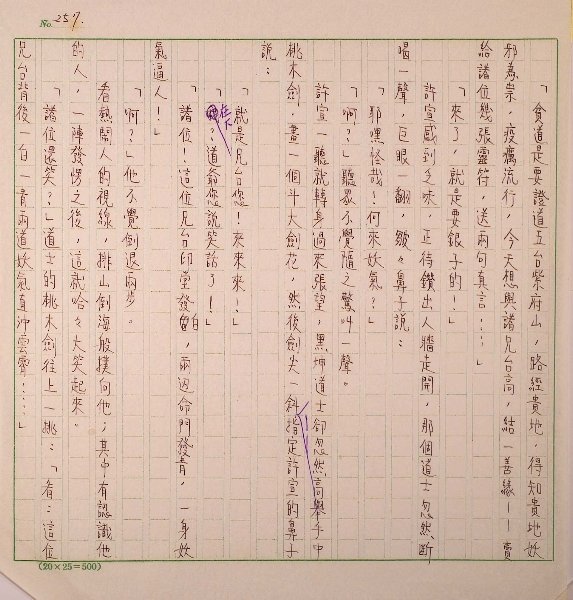 No. 257.
「貧道是要證道五台紫府山,路經貴地,得知貴地妖
邪為祟,疫癘流行,今天想與諸兄台高,結一善緣——賣
給諸位幾張靈符,送兩句真言……」
「來了,就是要銀子的!」
許宣感到乏味,正待鑽出人牆走開,那個道士忽然斷
喝一聲,巨眼一翻,皺々鼻子說:
「邪嘿怪哉!何來妖氣?」
「啊?」聽眾不覺隨之驚叫一聲。
許宣一聽就轉身過來張望,黑坤道士卻忽然高舉手中
桃木劍,畫一個斗大劍花,然後劍尖一斜指定許宣的鼻子
說:
「就是兄台您!來來來!」
「在下?道爺您說笑話了!」
「諸位!這位兄台印堂發白,兩边命門發青,一身妖
氣逼人!」
「啊?」他不覺倒退兩步
看熱鬧人的視線,排山倒海般撲向他;其中有認識他
的人,一陣發愣之後,這就哈々大笑起來。
「諸位還笑?」道士的桃木劍往上一挑:「看:這位
兄台背後一白一青兩道妖氣直沖雲霄!……」
(20×25=500)